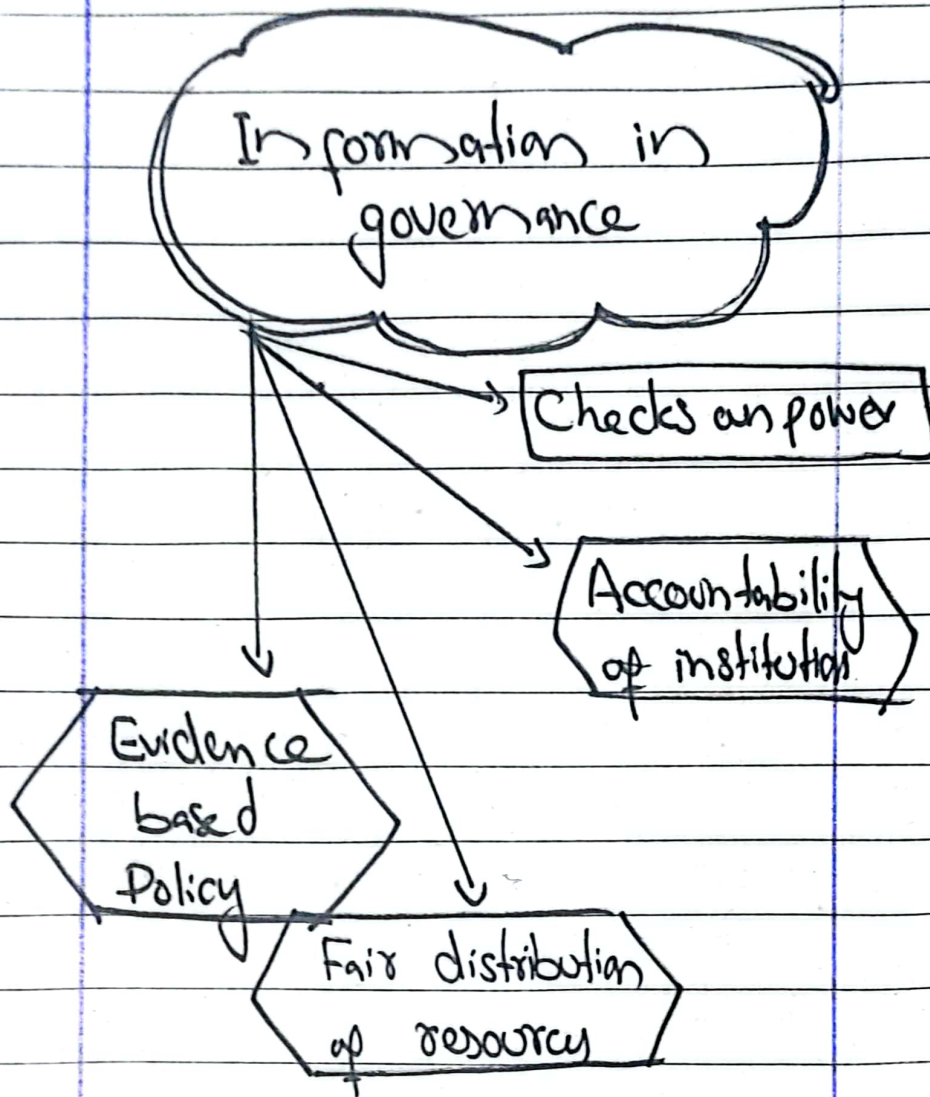 Information in
governance
Checks on power
Accountability
of institution
Evidence
based
Policy
Fair distribution
of resources